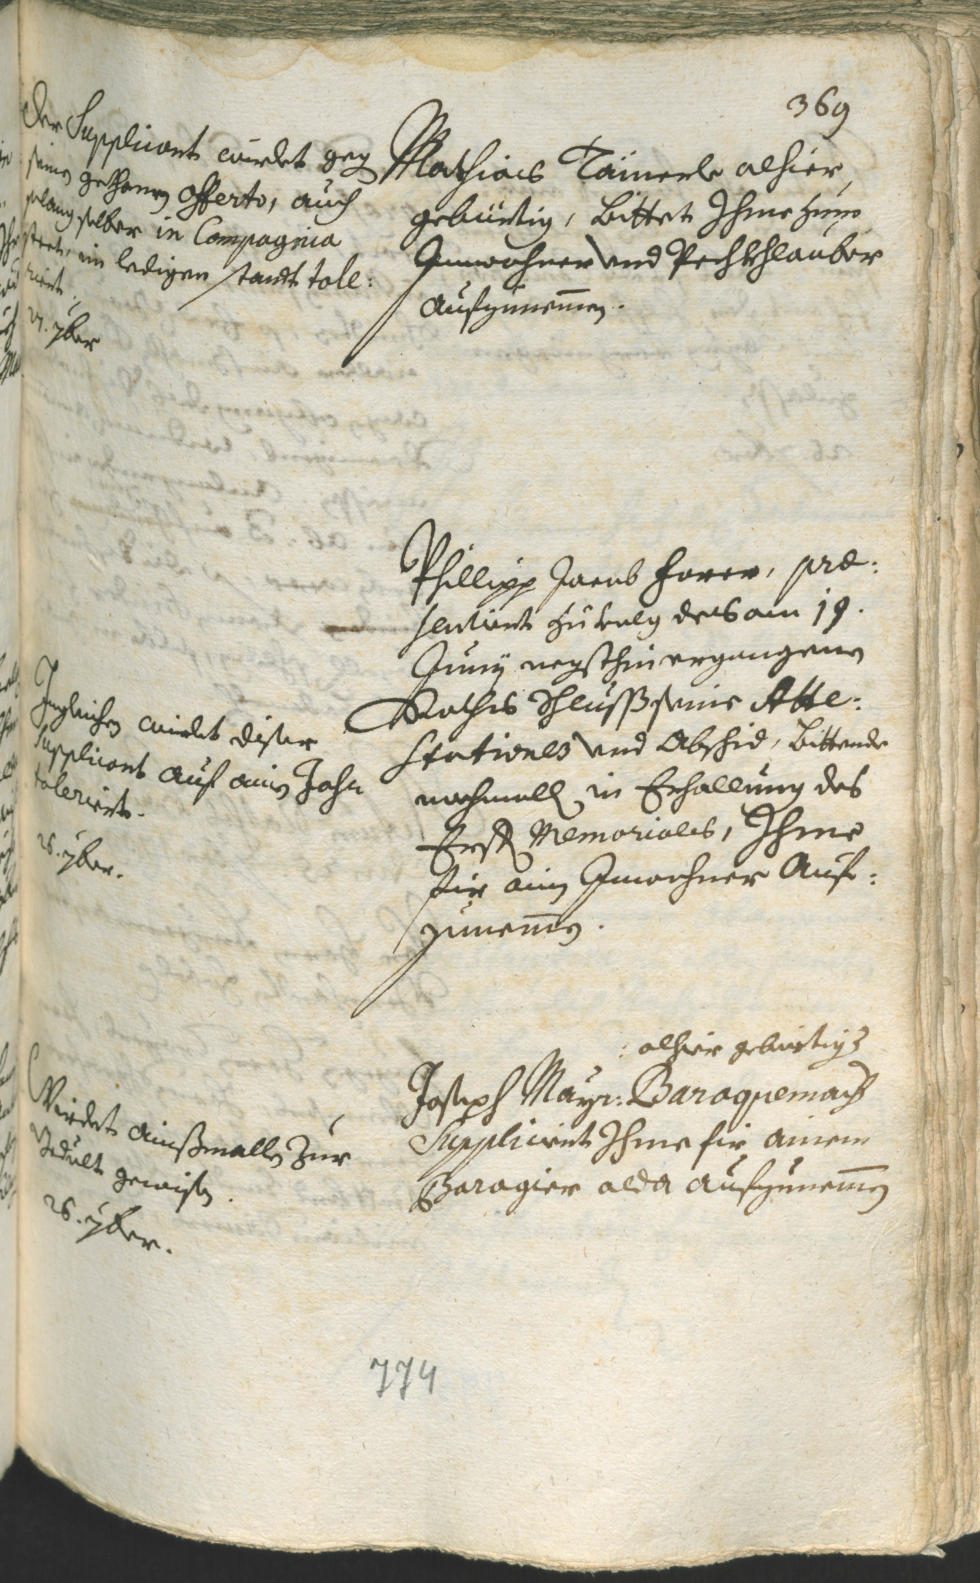 369
Der Supplicant wirdet geg
seinen gethanen Offerto, auch
solang selber in Compagnia
steet, im ledigen standt tole:
riert.
27. 7ber
Mathias Täinerle alhier
gebürtig, bittet Ihme zum
Innwohner und Pechkhlauber
aufzunemen.
Phillipp Jacob Forer, præ:
sentiert zu volg des am 19.
Juny negsthin ergangenen
Raths Schlusß seine Atte:
stationes und Abschid, bittende
nochmall in Erhallung des
Erst Memoriales, Ihme
für ain Inwohner auf:
zunemen.
Ingleichen wirdet diser
Supplicant auf ain Jahr
toleriert.
26. 7ber.
: alhier gebürtig :
Joseph Mayr: Baroquemach
Supplicirt Ihme für ainem
Barogier alda aufzunemen
Wirdet ainßmalls zur
Gedult gewisen.
26. 7ber.
774